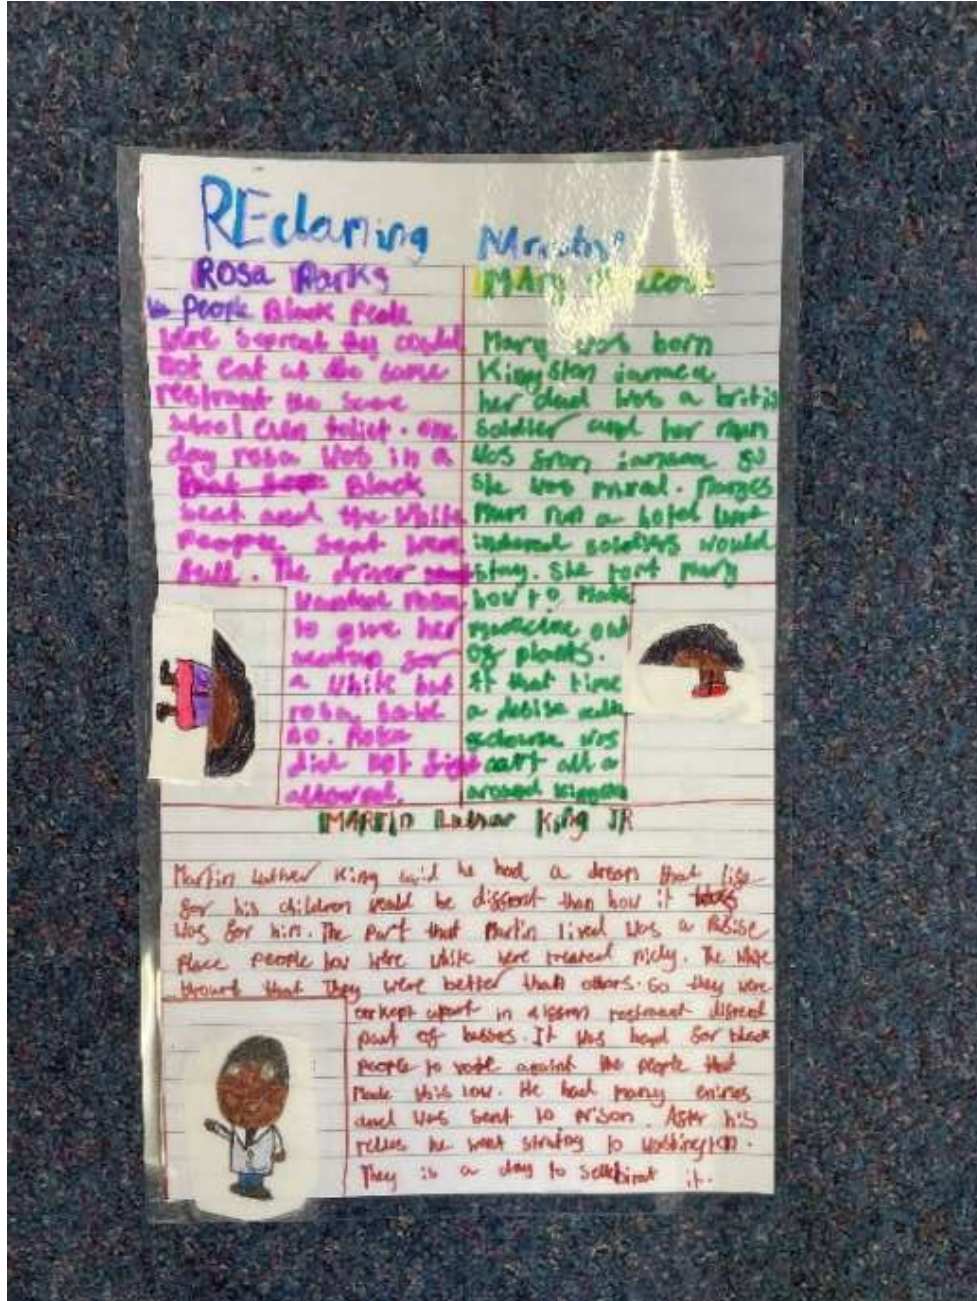 REclaming Narrative
Rosa Parks
People Black Peale
were seprent they could
not eat at the same
restrant the same
school even toliet. one
day rosa was in a
Black
seat and the White
People seat were
full. The driver
wanted rosa
to give her
seatup for
a white but
rosa said
no. Rosa
did not
allowed.
MAry
Mary was born
Kingston jamaca
her dad was a britis
soldier and her mum
was from jamaca so
she was mixed. Marges
Mum run a hotel were
indured soldiers would
stay. She tort Mary
how to make
medicine out
of plants.
At that time
a
was
all a
around Kingston
MARTIN Luthar King JR
Martin Luther King said he had a dream that life
for his children would be diffrent than how it
was for him. The Part that Martin lived was a
Place People how were white were treated nicly. The white
thourt that They were better than others. So they were
kept apart in restrment difrent
part of busses. It was hard for black
people to vote againt the people that
made this low. He had many enimes
and was sent to prison. After his
relies he went straing to Washington.
They is a day to sellibrat it.